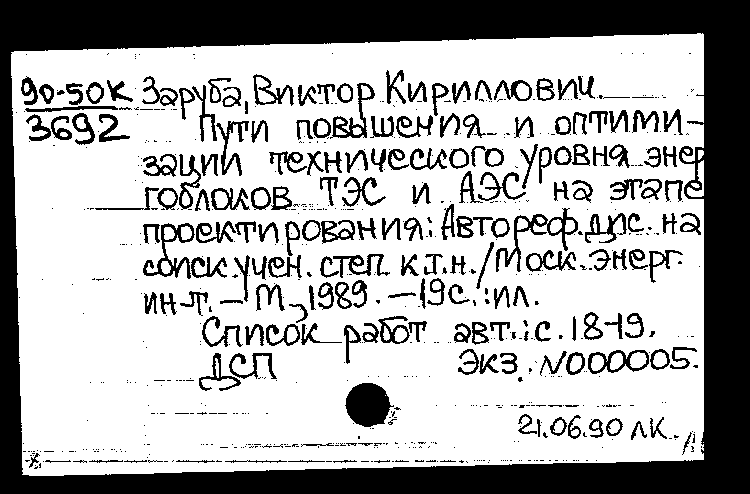 90-50К Заруба, Виктор Кириллович.
3692 Пути повышения и оптими-
зации технического уровня энер
гоблоков ТЭС и АЭС на этапе
проектирования: Автореф. дис. на
соиск. учен. степ. к.т.н. / Моск. энерг.
ин-т. – М., 1989. – 19с.: ил.
Список работ авт.: с. 18-19.
ДСП Экз. N000005.
21.06.90 ЛК.